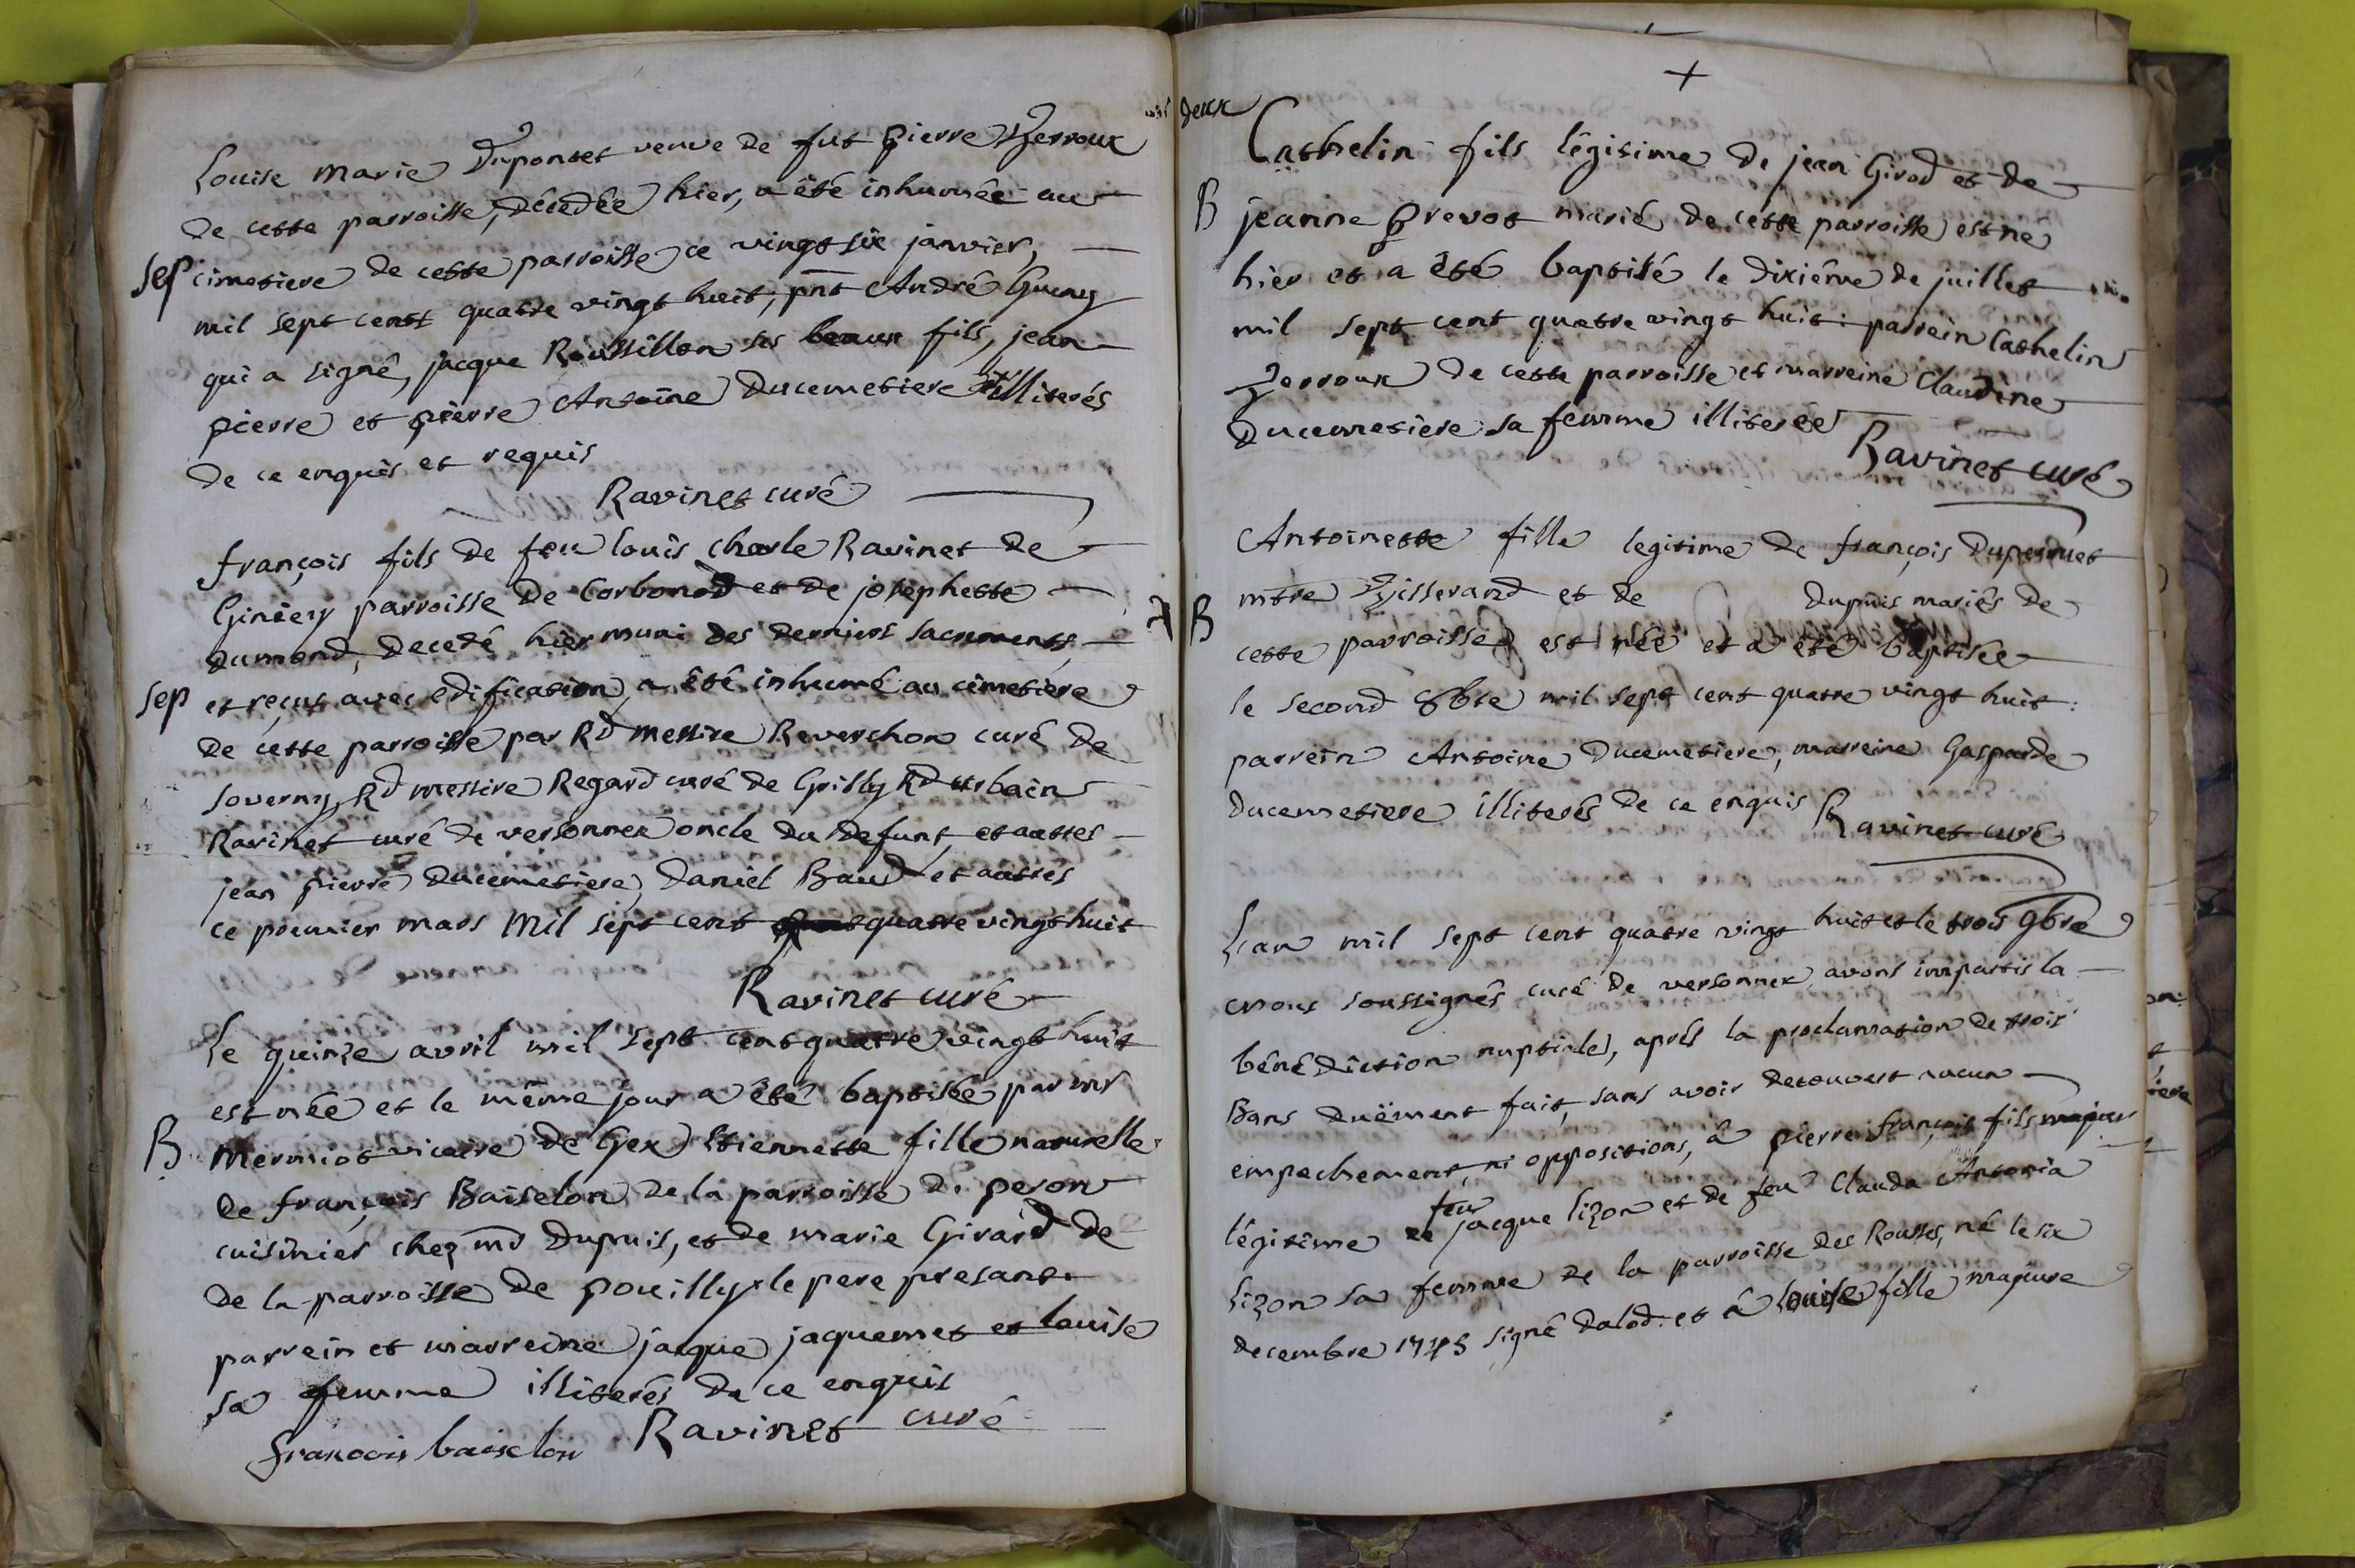 Louise Marie Duponset veuve de fut pierre Perroux
de cette parroisse, décedée hier, a êté inhumée au
Sep cimetiere de cette parroisse ce vingt six janvier,
mil sept cent quatre vingt huit, pnt André Gueny
qui a signé, jacque Roussillon ses beaux fils, jean
pierre et pierre Antoine Ducemetiere illiterés
de ce enquis et requis
Ravinet curé
françois fils de feu louis charle Ravinet de
Ginêry parroisse de Corbonod et de josephette
Dumond, decedé hier muni des derniers sacrements,
Sep et reçus avec edification, a êté inhumé au cimetiere
de cette parroisse par Rd Messire Reverchon curé de
Soverny, Rd messire Regard curé de Grilly Rd urbain
Ravinet curé de versonnex oncle du defunt, et autres
jean pierre Ducemetiere, Daniel Baud et autres
ce premier mars Mil sept cent quatre vingt huit
Ravinet curé
Le quinze avril mil sept cent quatre vingt huit
est née et le même jour a êté baptisée par mr
B Mermiot vicaire de Gex Etiennette fille naturelle
de françois Baiselon de la parroisse de peron
cuisinier chez mr Dupuis, et de marie Girard de
de la parroisse de pouilly le pere presant.
parrein et marreine jacque jaquemet et louise
sa femme illiterés de ce enquis
francois baiselon Ravinet curé
deux
Cathelin fils légitime de jean Girod et de
B jeanne Prevot marié de cette parroisse est né
hier et a êté baptisé le dixiéme de juillet
mil sept cent quatre vingt huit: parrein Cathelin
Perroux de cette parroisse et marreine Claudine
Ducemetiere sa femme illiterée
Ravinet curé
Antoinette fille legitime de françois Dupersuet
mtre Tisserand et de Dupuis mariés de
B cette parroisse est née et a êté baptisée
le second 8bre mil sept cent quatre vingt huit:
parrein Antoine Ducemetiere, marreine Gasparde
Ducemetiere illiterés de ce enquis Ravinet curé
L'an mil sept cent quatre vingt huit et le trois 9bre
nous soussignés curé de versonnex, avons impartis la
bénédiction nuptiale, aprés la proclamation de trois
Bans duëment fait, sans avoir decouvert aucun
empechement, ni oppositions, â pierre françois fils majeur
légitime de feu jacque Lizon et de feu Clauda Antonia
Lizon sa femme de la parroisse des Rousses, né le six
decembre 1745 signé Dalod. et â Louise fille majeure